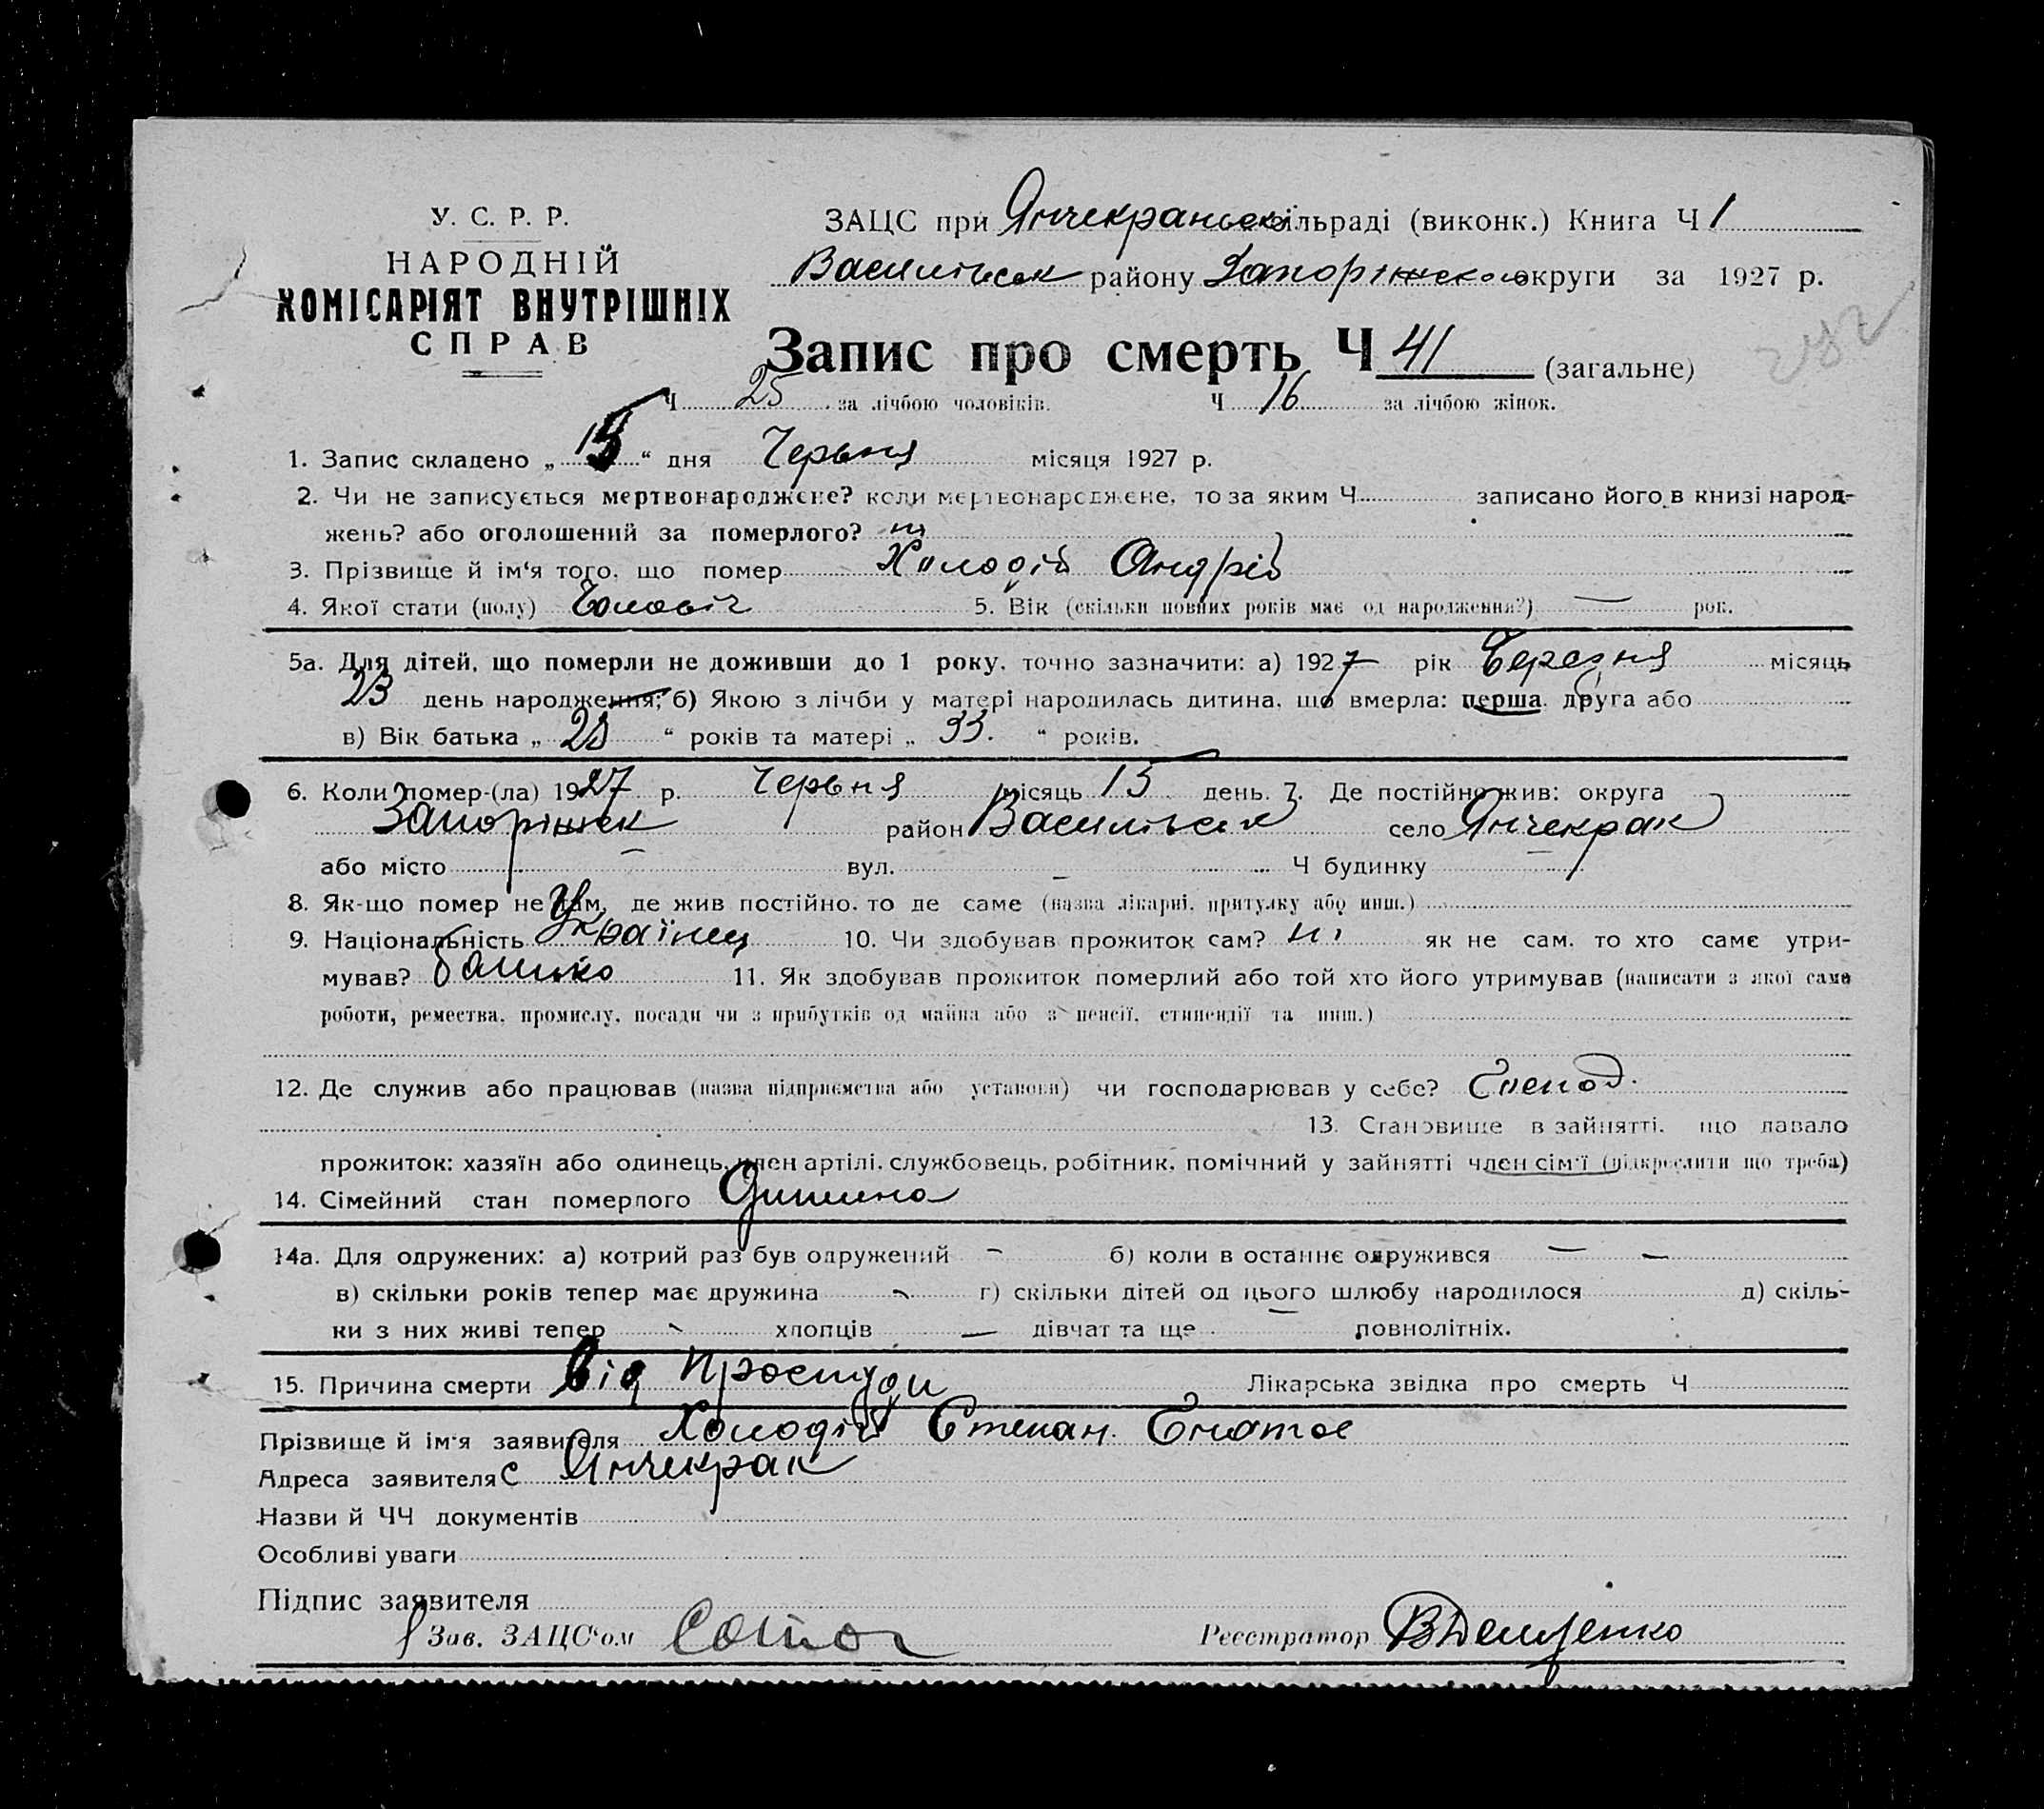 У. С. Р. Р.
НАРОДНІЙ
КОМІСАРІЯТ ВНУТРІШНІХ
СПРАВ
ЗАЦС при Янчекраньск сільраді (виконк.) Книга Ч 1
Васильевск району Запоріжсько округи за 1927 р.
Запис про смерть Ч 41 (загальне)
Ч 25 за лічбою чоловіків. Ч 16 за лічбою жінок.
1. Запис складено „ 15 “ дня Червня місяця 1927 р.
2. Чи не записується мертвонароджене? коли мертвонароджене, то за яким Ч записано його в книзі народ-
жень? або оголошений за померлого? ні
3. Прізвище й ім‘я того, що помер Холодій Андрій
4. Якої стати (полу) Чоловіч 5. Вік (скільки повних років має од народження?) — рок.
5а. Для дітей, що померли не доживши до 1 року, точно зазначити: а) 1927 рік Березня місяць
23 день народження; б) Якою з лічби у матері народилась дитина, що вмерла: перша, друга або
в) Вік батька „ 28 “ років та матері „ 33. “ років.
6. Коли помер-(ла) 1927 р. Червня місяць 15 день. 7. Де постійно жив: округа
Запоріжск район Васильевск село Янчекрак
або місто — вул. — Ч будинку —
8. Як-що помер не там, де жив постійно, то де саме (назва лікарні, притулку або инш.)
9. Національність Украінец 10. Чи здобував прожиток сам? ні як не сам, то хто саме утри-
мував? батько 11. Як здобував прожиток померлий або той хто його утримував (написати з якої саме
роботи, ремества, промислу, посади чи з прибутків од майна або з пенсії, стипендії та инш.)
12. Де служив або працював (назва підприємства або установи) чи господарював у себе? Господ.
13. Становище в зайнятті, що давало
прожиток: хазяїн або одинець, член артілі, службовець, робітник, помічний у зайнятті член сім‘ї (підкреслити що треба)
14. Сімейний стан померлого Дитина
14а. Для одружених: а) котрий раз був одружений — б) коли в останнє одружився — —
в) скільки років тепер має дружина — г) скільки дітей од цього шлюбу народилося — д) скіль-
ки з них живі тепер — хлопців — дівчат та ще повнолітніх.
15. Причина смерти від Простуди Лікарська звідка про смерть Ч
Прізвище й ім‘я заявителя Холодій Степан
Адреса заявителя с Янчекрак
Назви й ЧЧ документів
Особливі уваги
Підпис заявителя
Зав. ЗАЦС‘ом
Реєстратор